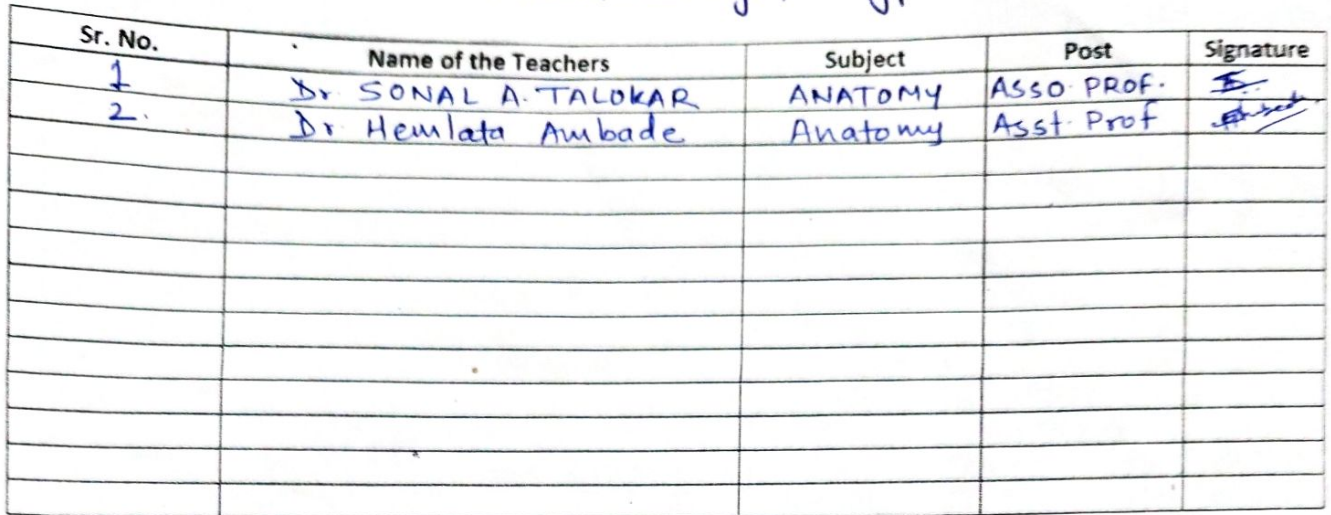 Sr. No. Name of the Teachers Subject Post Signature
1 Dr. SONAL A. TALOKAR ANATOMY ASSO. PROF.
2. Dr. Hemlata Ambade Anatomy Asst. Prof